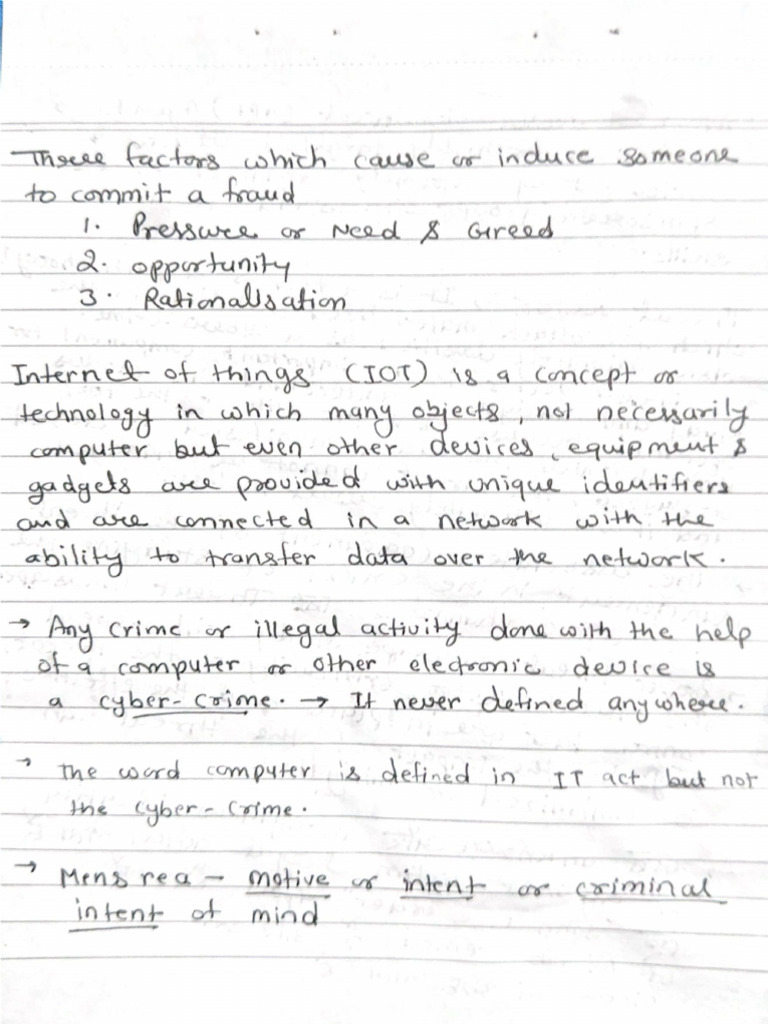 Three factors which cause or induce someone
to commit a fraud
1. Pressure or Need & Greed
2. opportunity
3. Rationalisation
Internet of things (IOT) is a concept or
technology in which many objects, not necessarily
computer but even other devices, equipment &
gadgets are provided with unique identifiers
and are connected in a network with the
ability to transfer data over the network.
→ Any crime or illegal activity done with the help
of a computer or other electronic device is
a cyber-crime. → It never defined anywhere.
→ The word computer is defined in IT act but not
the cyber-crime.
→ Mens rea - motive or intent or criminal
intent of mind